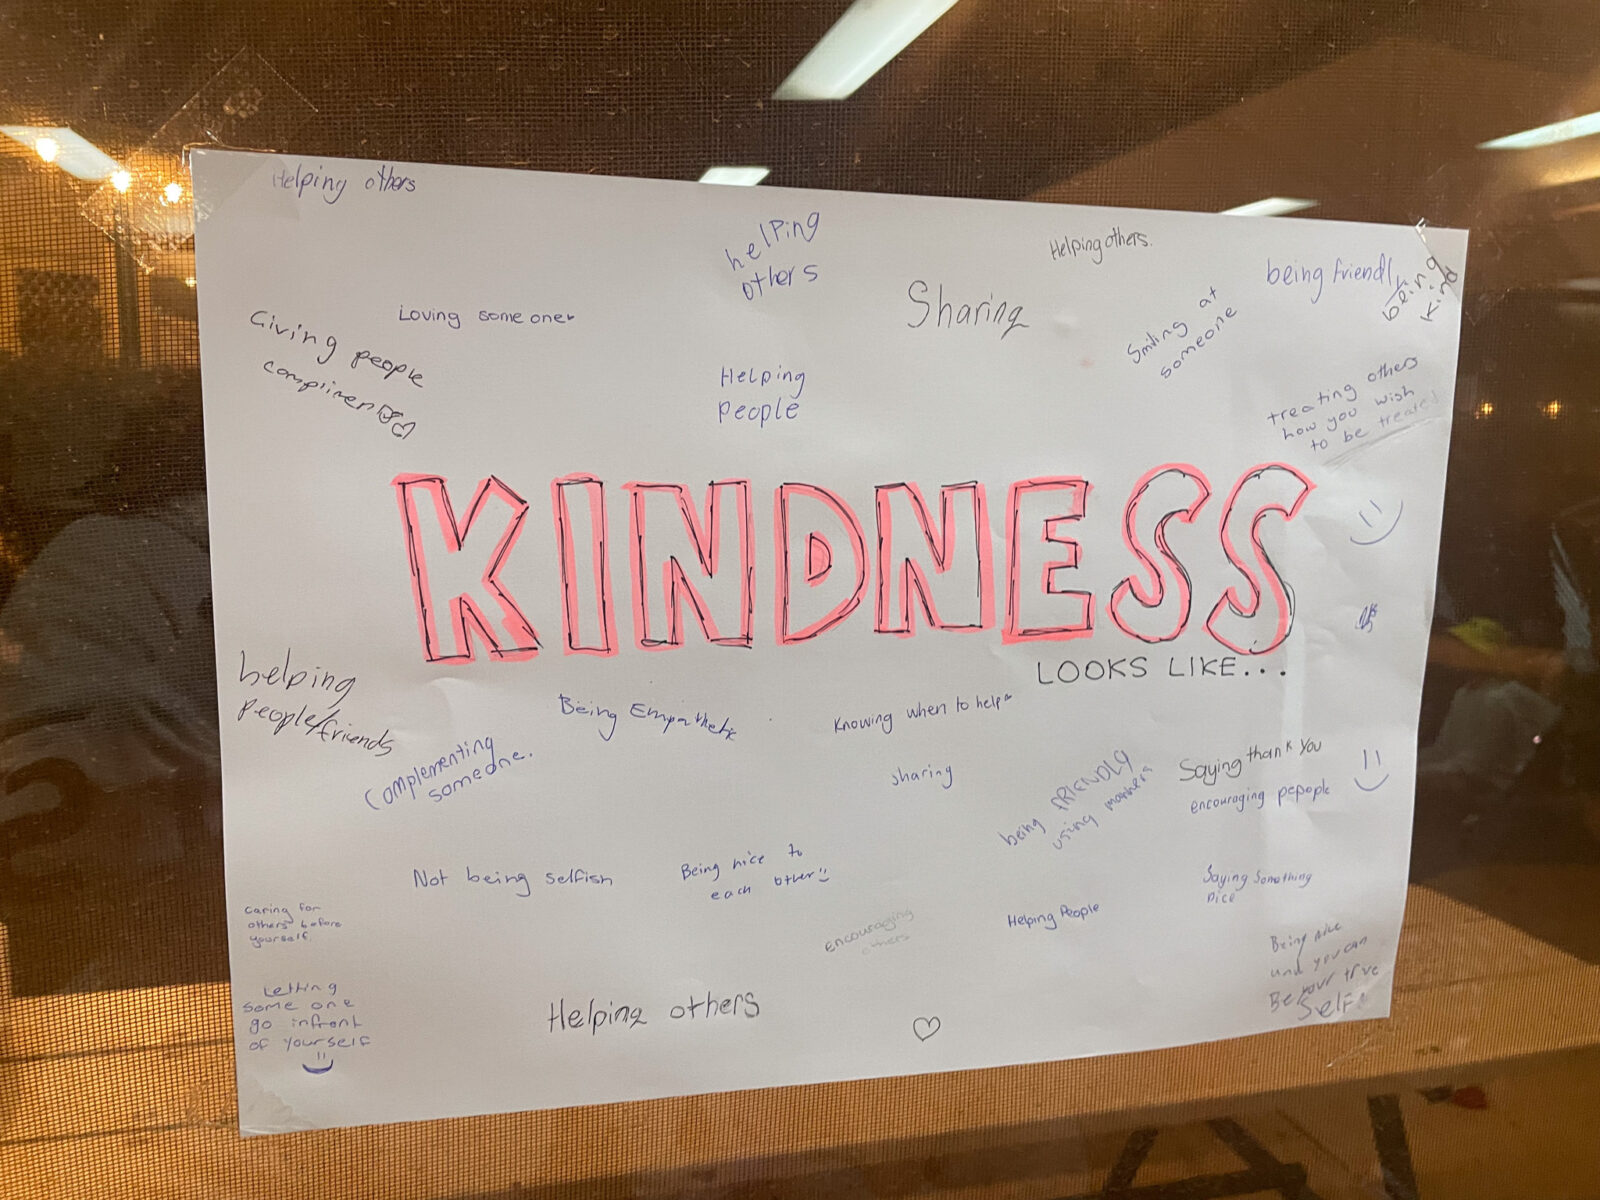 Helping others
helping
others
Helping others.
being friendly
being
kind
Sharing
Smiling at
someone
Loving someone
Giving people
compliments
Helping
people
treating others
how you wish
to be treated
KINDNESS
LOOKS LIKE...
helping
people/friends
Being Empathetic
Knowing when to help
Complementing
someone.
sharing
being FRIENDLY
using manners
Saying thank you
encouraging pepople
Not being selfish
Being nice to
each other
Saying Something
nice
Caring for
others before
yourself.
encouraging
others
Helping People
Being nice
and you can
Be your true
Self
Letting
some one
go infront
of yourself
Helping others